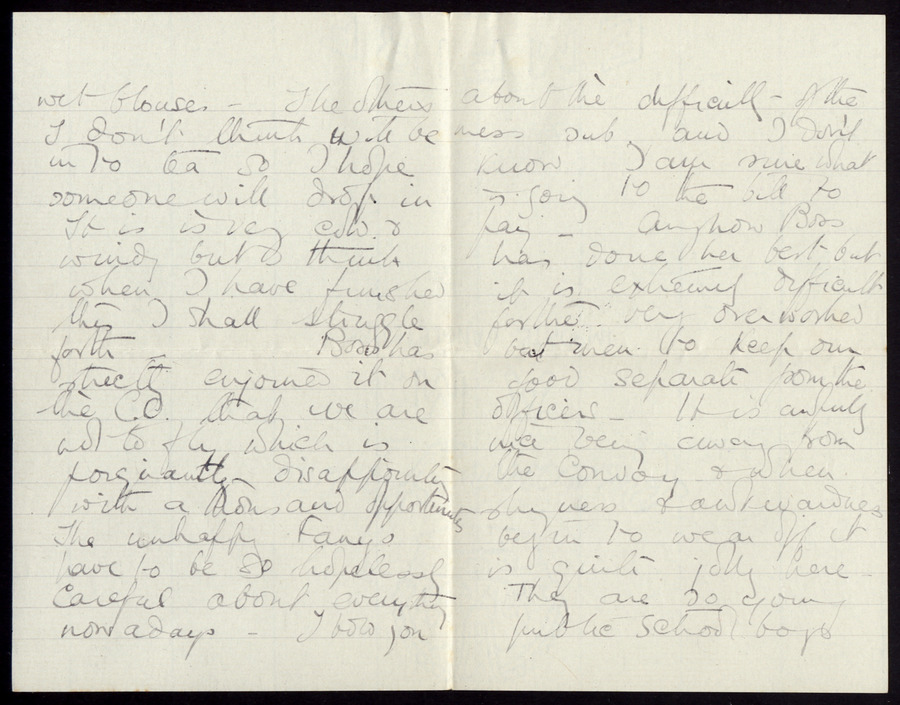 wet blouses - The others
I don't think will be
in to tea so I hope
someone will drop in
It is very cold &
windy but I think
when I have finished
this I shall struggle
forth - Boss has
strictly enjoined it on
the C.O. that we are
not to fly which is
poignantly disappointing
with a thousand opportunities
The unhappy Fanys
have to be so hopelessly
careful about everything
nowadays - I told you
about the difficulty - of the
mess sub, and I don't
know I am sure what
is going to the bill to
pay - Anyhow Boss
has done her best but
it is extremely difficult
for the very overworked
batmen to keep our
food separate from the
officers - It is awfully
nice being away from
the Convoy & when
shyness & awkwardness
begin to wear off it
is quite jolly here -
They are so young
public school boys